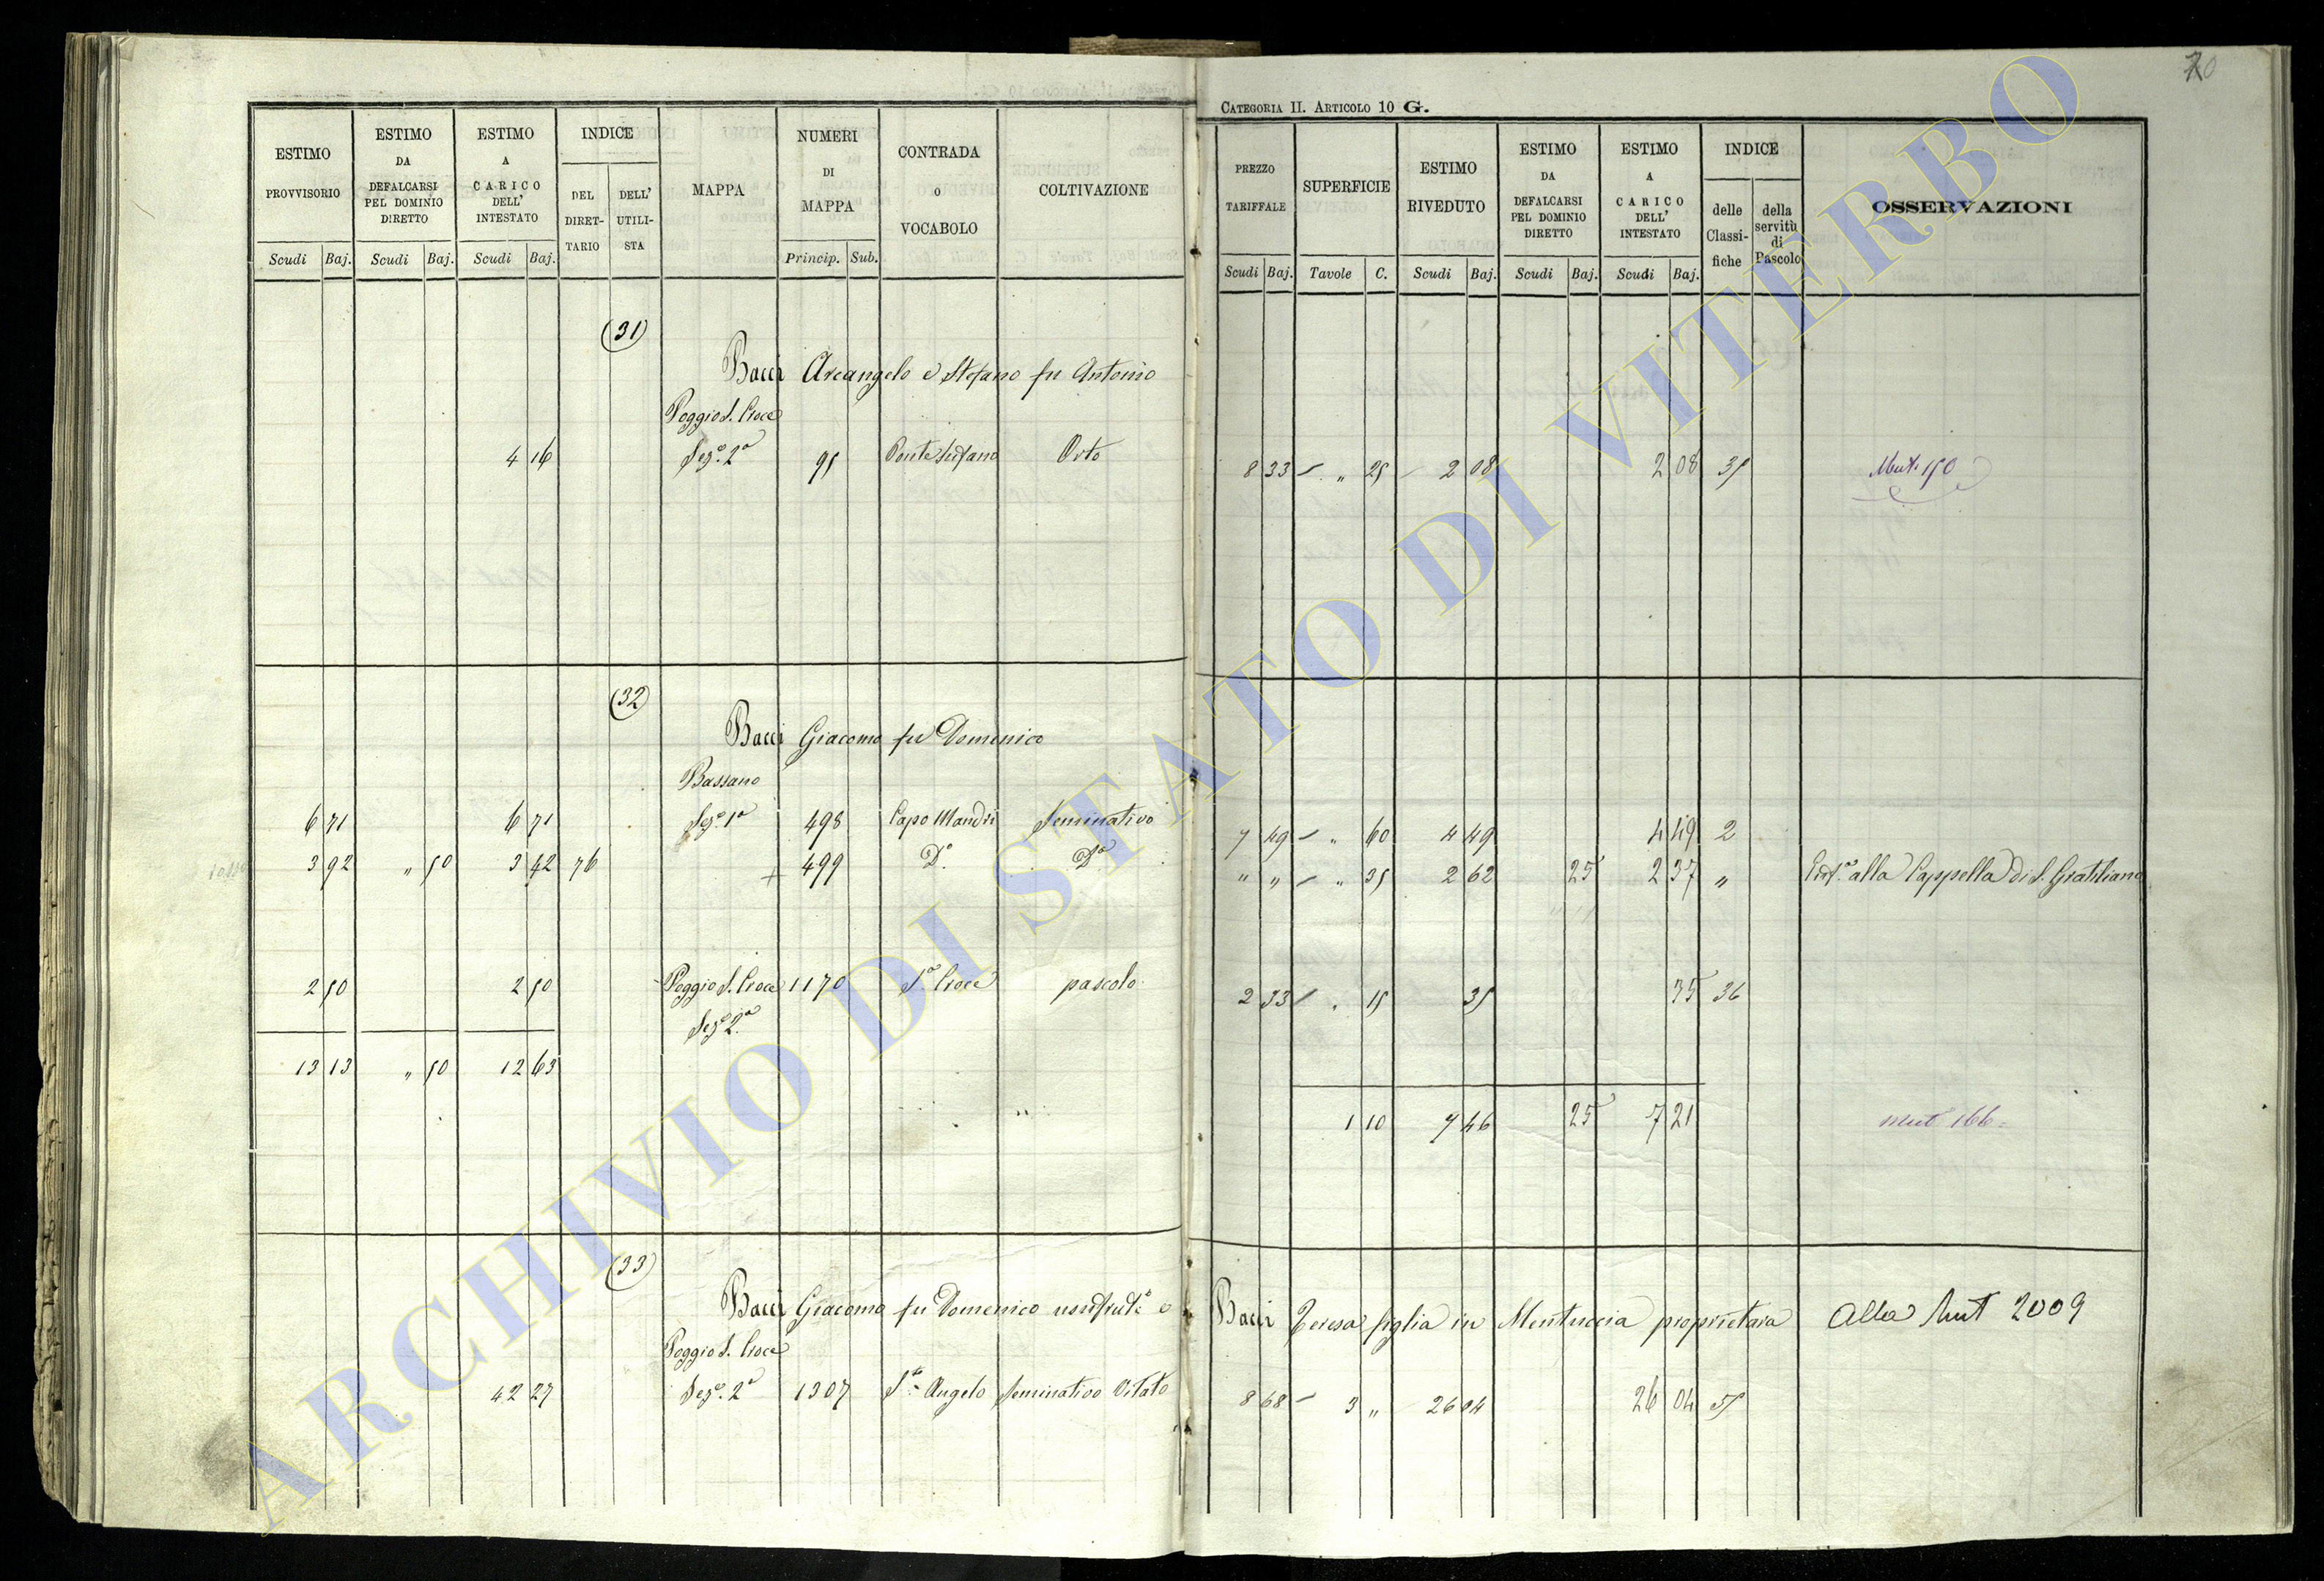 10
CATEGORIA II. ARTICOLO 10 G.
ESTIMO PROVVISORIO
ESTIMO DA DEFALCARSI PEL DOMINIO DIRETTO
ESTIMO A CARICO DELL' INTESTATO
INDICE
DEL DIRET-TARIO
DELL' UTILI-STA
MAPPA
NUMERI DI MAPPA
CONTRADA o VOCABOLO
COLTIVAZIONE
Scudi Baj. Scudi Baj. Scudi Baj. Princip. Sub.
PREZZO TARIFFALE
SUPERFICIE
ESTIMO RIVEDUTO
ESTIMO DA DEFALCARSI PEL DOMINIO DIRETTO
ESTIMO A CARICO DELL' INTESTATO
INDICE
delle Classi-fiche
della servitù di Pascolo
OSSERVAZIONI
Scudi Baj. Tavole C. Scudi Baj. Scudi Baj. Scudi Baj.
(31)
Bacci Arcangelo e Stefano fu Antonio
Poggio S. Croce
4 16 Sez.e 2a 95 Ponte Sufano Orto 8 33 " 25 2 08 2 08 35 Mut. 150
(32)
Bacci Giacomo fu Domenico
Bassano
6 71 6 71 Sez.e 1a 498 Capo Mandri Seminativo 7 49 " 60 4 49 4 49 2
3 92 " 50 3 42 76 + 499 Do Do " " " 35 2 62 25 2 37 " alla Cappella di S. Gratiliano
2 50 2 50 Poggio S. Croce 1170 Sa Croce pascolo 2 33 " 15 35 35 36
Sez.e 2a
13 13 " 50 12 63 1 10 7 46 25 7 21 Mut 166
(33)
Bacci Giacomo fu Domenico usufrut.o e Bacci Teresa figlia in Mentuccia proprietaria Alla Mut 2009
Poggio S. Croce
42 27 Sez.e 2a 1307 St. Angelo Seminativo Vitato 8 68 3 " 26 04 26 04 35
ARCHIVIO DI STATO DI VITERBO